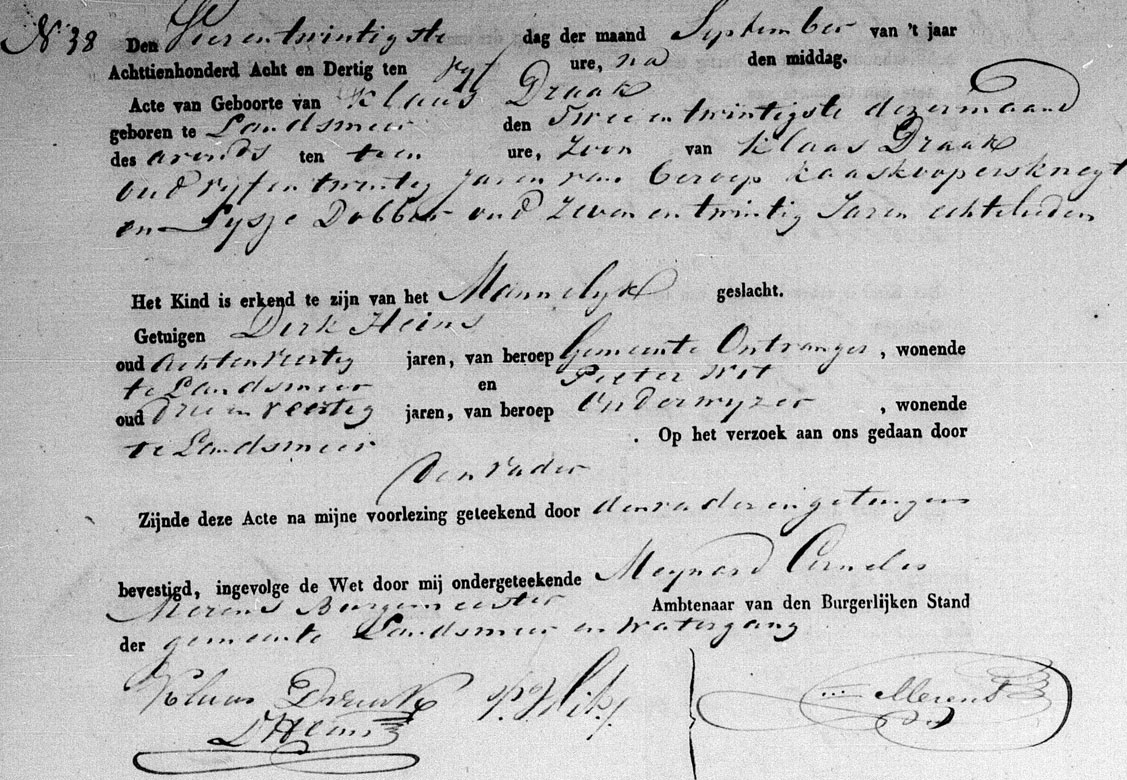 N 38 Den Vier en twintigste dag der maand September van 't jaar
Achttienhonderd Acht en Dertig ten vyf ure, na den middag.
Acte van Geboorte van Klaas Draak
geboren te Landsmeer den Twee en twintigste dezer maand
des avonds ten tien ure, Zoon van Klaas Draak
oud vyf en twintig Jaren van beroep kaaskoopersknegt
en Lysje Dobber oud Zeven en twintig Jaren echtelieden
Het Kind is erkend te zijn van het Mannelyk geslacht.
Getuigen Derk Heins
oud Acht en Veertig jaren, van beroep Gemeente Ontvanger, wonende
te Landsmeer en Pieter
oud Drie en veertig jaren, van beroep Onderwyzer, wonende
te Landsmeer . Op het verzoek aan ons gedaan door
den vader
Zijnde deze Acte na mijne voorlezing geteekend door den vader en getuigen
bevestigd, ingevolge de Wet door mij ondergeteekende Meynard Cornelis
Merens Burgemeester Ambtenaar van den Burgerlijken Stand
der gemeente Landsmeer en Watergang
Klaas Draak
D Heins
Merens